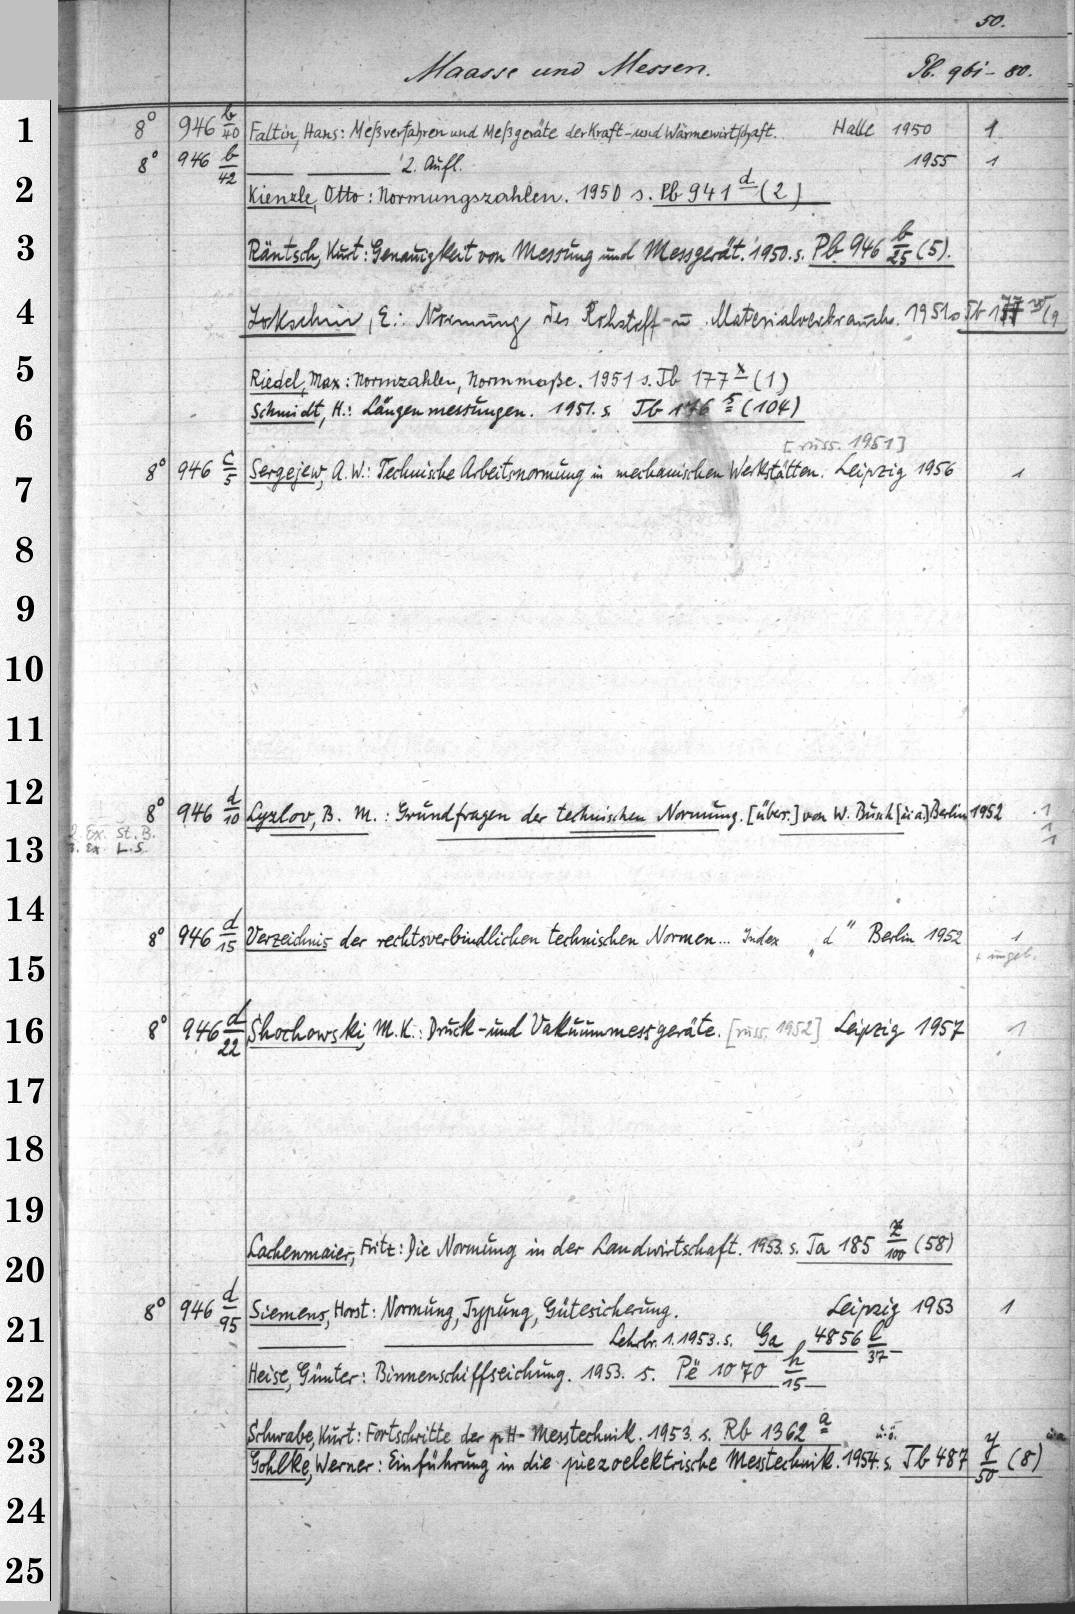 50.
Maasse und Messen. Pb. 961-80.
1 8° 946 b/40 Faltin, Hans: Meßverfahren und Meßgeräte der Kraft- und Wärmewirtschaft. Halle 1950 1
8° 946 b/42 2. Aufl. 1955 1
2 Kienzle, Otto: Normungszahlen. 1950 s. Pb 941 d (2)
3 Räntsch, Kurt: Genauigkeit von Messung und Messgerät. 1950. s. Pb 946 b/25 (5).
4 E.: Normung des Rohstoff- u. Materialverbrauchs. 1951
5 Riedel, Max: Normzahlen, Normmaße. 1951 s. Tb 177 x (1)
6 Schmidt, H.: Längenmessungen. 1951. s. Tb 176 (104)
[russ. 1951]
7 8° 946 c/5 Sergejew, A. W.: Technische Arbeitsnormung in mechanischen Werkstätten. Leipzig 1956 1
8
9
10
11
12 8° 946 d/10 Lyzlov, B. M.: Grundfragen der technischen Normung. [übers.] von W. Busch [u.a.] Berlin 1952 1
2. Ex. St. B. 1
13 3. Ex L.S. 1
14
8° 946 d/15 Verzeichnis der rechtsverbindlichen technischen Normen... Index „d" Berlin 1952 1
15
16 8° 946 d/22 Shochowski, M.K.: Druck- und Vakuummessgeräte. [russ. 1952] Leipzig 1957 1
17
18
19
20 Lachenmaier, Fritz: Die Normung in der Landwirtschaft. 1953. s. Ta 185 z/100 (58)
8° 946 d/95 Siemens, Horst: Normung, Typung, Gütesicherung. Leipzig 1953 1
21 Lehrbr. 1. 1953. s. Ga 4856 l/37
22 Heise, Günter: Binnenschiffseichung. 1953. s. Pë 1070 h/15
Schwabe, Kurt: Fortschritte der pH-Messtechnik. 1953. s. Rb 1362 a u.ö.
23 Gohlke, Werner: Einführung in die piezoelektrische Messtechnik. 1954. s. Tb 487 y/50 (8)
24
25